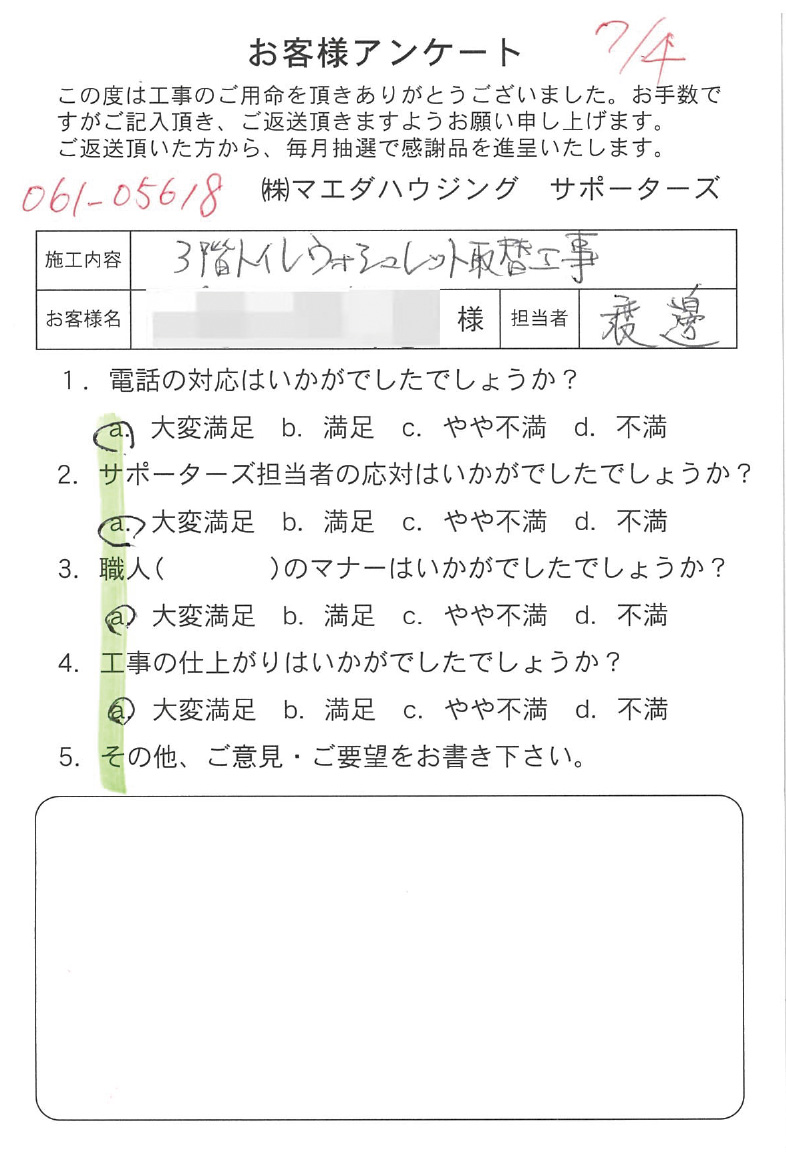 お客様アンケート
7/4
この度は工事のご用命を頂きありがとうございました。お手数で
すがご記入頂き、ご返送頂きますようお願い申し上げます。
ご返送頂いた方から、毎月抽選で感謝品を進呈いたします。
061-05618 ㈱マエダハウジング サポーターズ
施工内容 3階トイレウォシュレット取替工事
お客様名 様 担当者 渡邊
1. 電話の対応はいかがでしたでしょうか?
a. 大変満足 b. 満足 c. やや不満 d. 不満
2. サポーターズ担当者の応対はいかがでしたでしょうか?
a. 大変満足 b. 満足 c. やや不満 d. 不満
3. 職人( )のマナーはいかがでしたでしょうか?
a. 大変満足 b. 満足 c. やや不満 d. 不満
4. 工事の仕上がりはいかがでしたでしょうか?
a. 大変満足 b. 満足 c. やや不満 d. 不満
5. その他、ご意見・ご要望をお書き下さい。